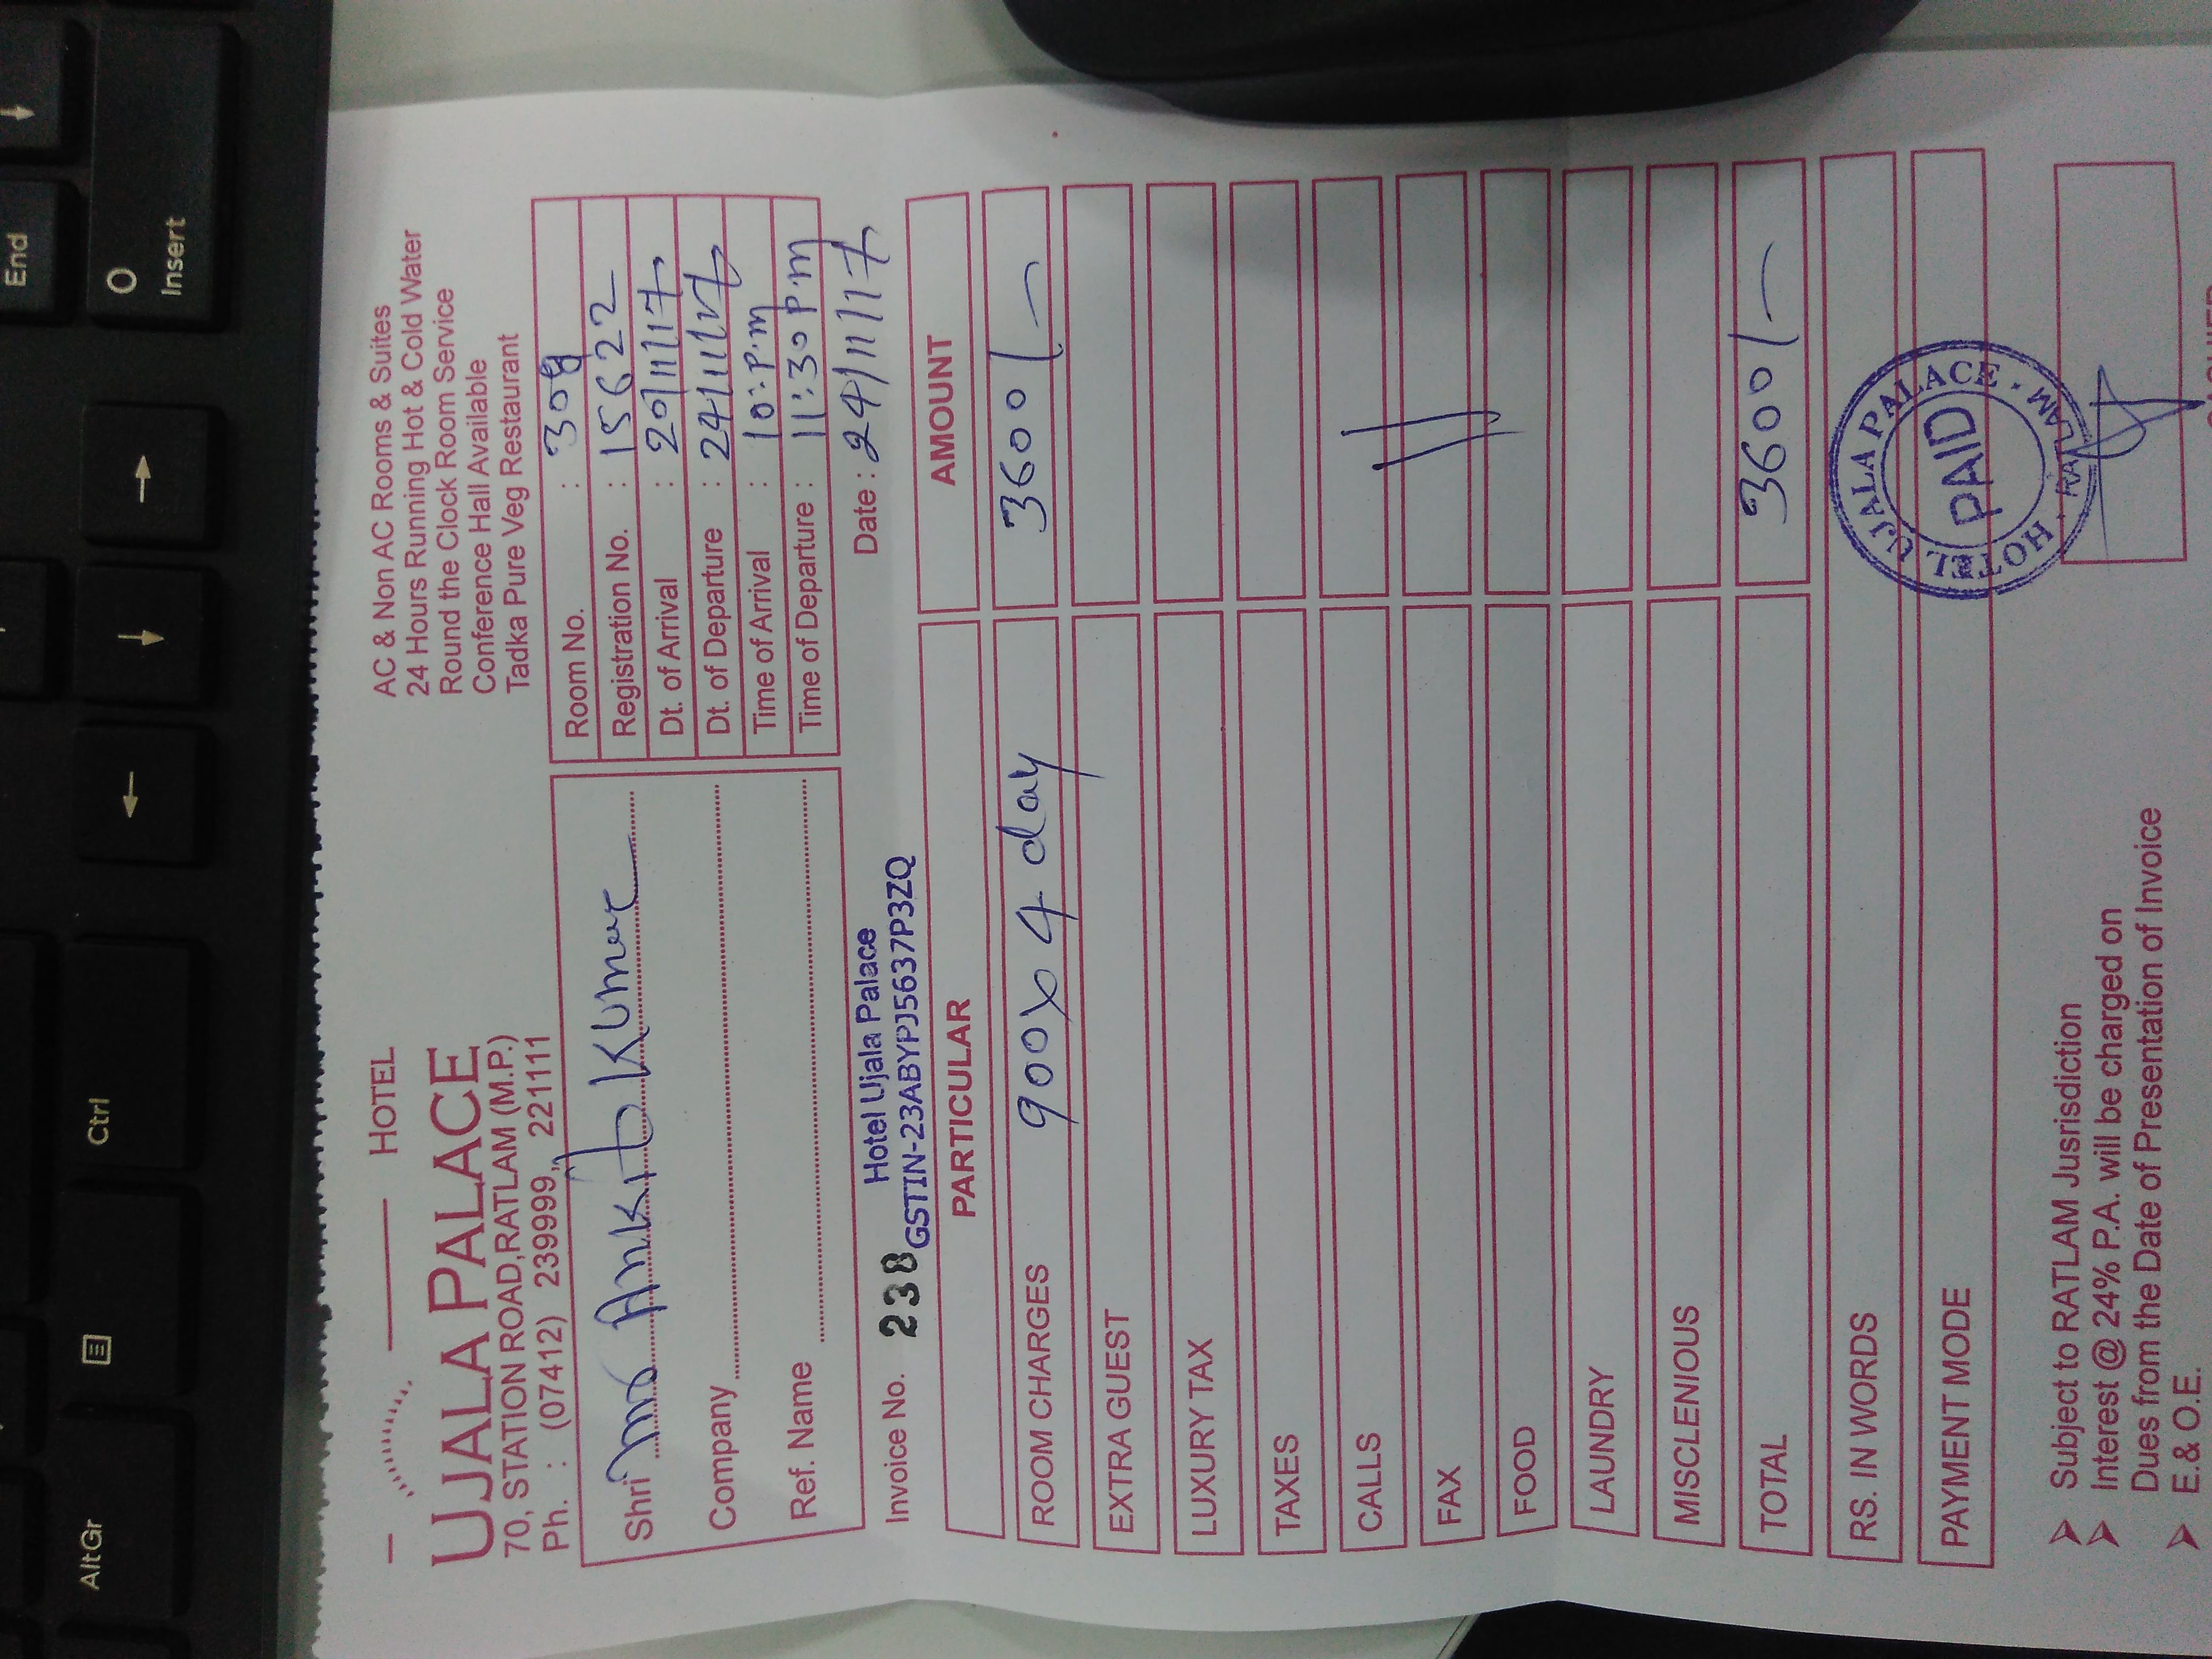 HOTEL
UJALA PALACE
70, STATION ROAD,RATLAM (M.P.)
Ph. : (07412) 239999, 221111
AC & Non AC Rooms & Suites
24 Hours Running Hot & Cold Water
Round the Clock Room Service
Conference Hall Available
Tadka Pure Veg Restaurant
Shri Ankit Kumar
Company
Ref. Name
Room No. : 309
Registration No. : 15622
Dt. of Arrival : 20/11/17
Dt. of Departure : 24/11/17
Time of Arrival : 10:P.m
Time of Departure : 11:30 P.m
Invoice No. 238
Hotel Ujala Palace
GSTIN-23ABYPJ5637P3ZQ
Date : 24/11/17
PARTICULAR AMOUNT
ROOM CHARGES 900x4 day 3600/-
EXTRA GUEST
LUXURY TAX
TAXES
CALLS
FAX
FOOD
LAUNDRY
MISCLENIOUS
TOTAL 3600/-
RS. IN WORDS
PAYMENT MODE
HOTEL UJALA PALACE · RATLAM ·
PAID
Subject to RATLAM Jusrisdiction
Interest @ 24% P.A. will be charged on
Dues from the Date of Presentation of Invoice
E.& O.E.
End
0
Insert
Ctrl
AltGr